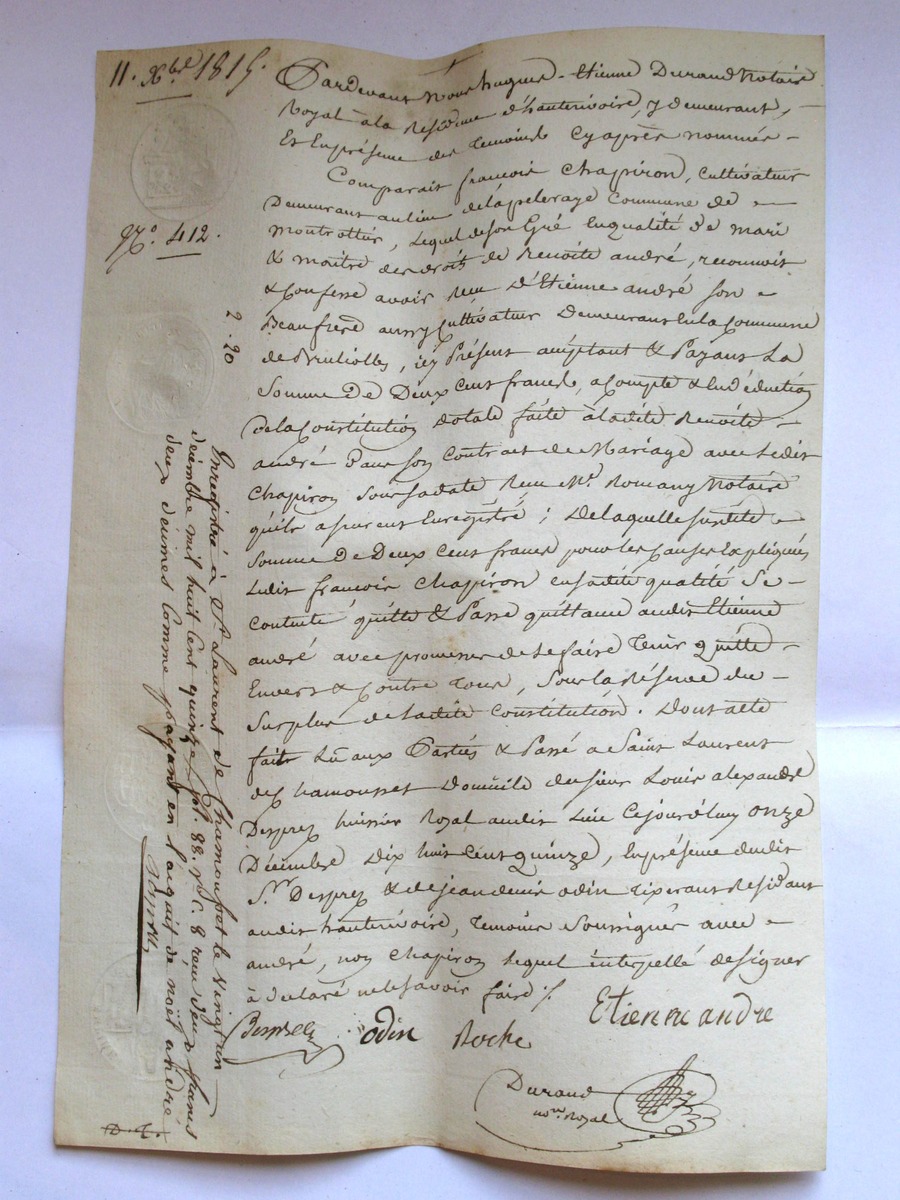 11. Xbre 1815.
No. 412.
2. 20
Pardevant Nous hugues-Etienne Durand Notaire
Royal à la Résidence d'hauterivoire, y demeurant,
Et En présence des Temoins Cyaprès nommés
Comparait françois Chapiron, Cultivateur
Demeurant au lieu de lapeleraye Commune de
Montrottier, lequel de son Gré En qualité de mari
& maitre des droits de Benoite andré, reconnoit
& Confesse avoir Reçu D'Etienne andré son
Beaufrere aussy Cultivateur Demeurant En la Commune
de Brulliolles, icy Présent acceptant & Payant La
Somme De Deux Cent francs, acompte & En déduction
de la Constitution dotale faite à ladite Benoite
andré Dans son Contrat de Mariage avec Ledit
Chapiron Sous sa date Reçu Me. Romany Notaire
qu'ils assurent Enregistré; De laquelle susdite
Somme De Deux Cent francs pour les Causes Expliquées
Ledit françois Chapiron en sadite qualité Se
contente quitte & Passe quittance audit Etienne
andré avec promesse de le faire Tenir Quitte
Envers & Contre Tous, Sous la Réserve du
Surplus de ladite Constitution. Dont acte
fait Lû aux Parties & Passé a Saint Laurent
de Chamousset Domicile du sieur Louis alexandre
Desprez huissier Royal audit Lieu Cejourd'huy onze
Décembre Dix huit Cent quinze, En présence dudit
Sr. Desprez & de jean denis odin Tixerant Résidant
audit hauterivoire, Temoins Soussignés avec
andré, non Chapiron lequel interpellé de signer
à déclaré ne le savoir faire ./.
odin Roche Etienne andré
Durand
nore Royal
Enregistré à St. Laurent de Chamousset le Vingt un
décembre mil huit Cent quinze fol. 88. Vo. C. 8 reçu deux francs
deux décimes Comme payant en l'acquit de noël andré
D. E.